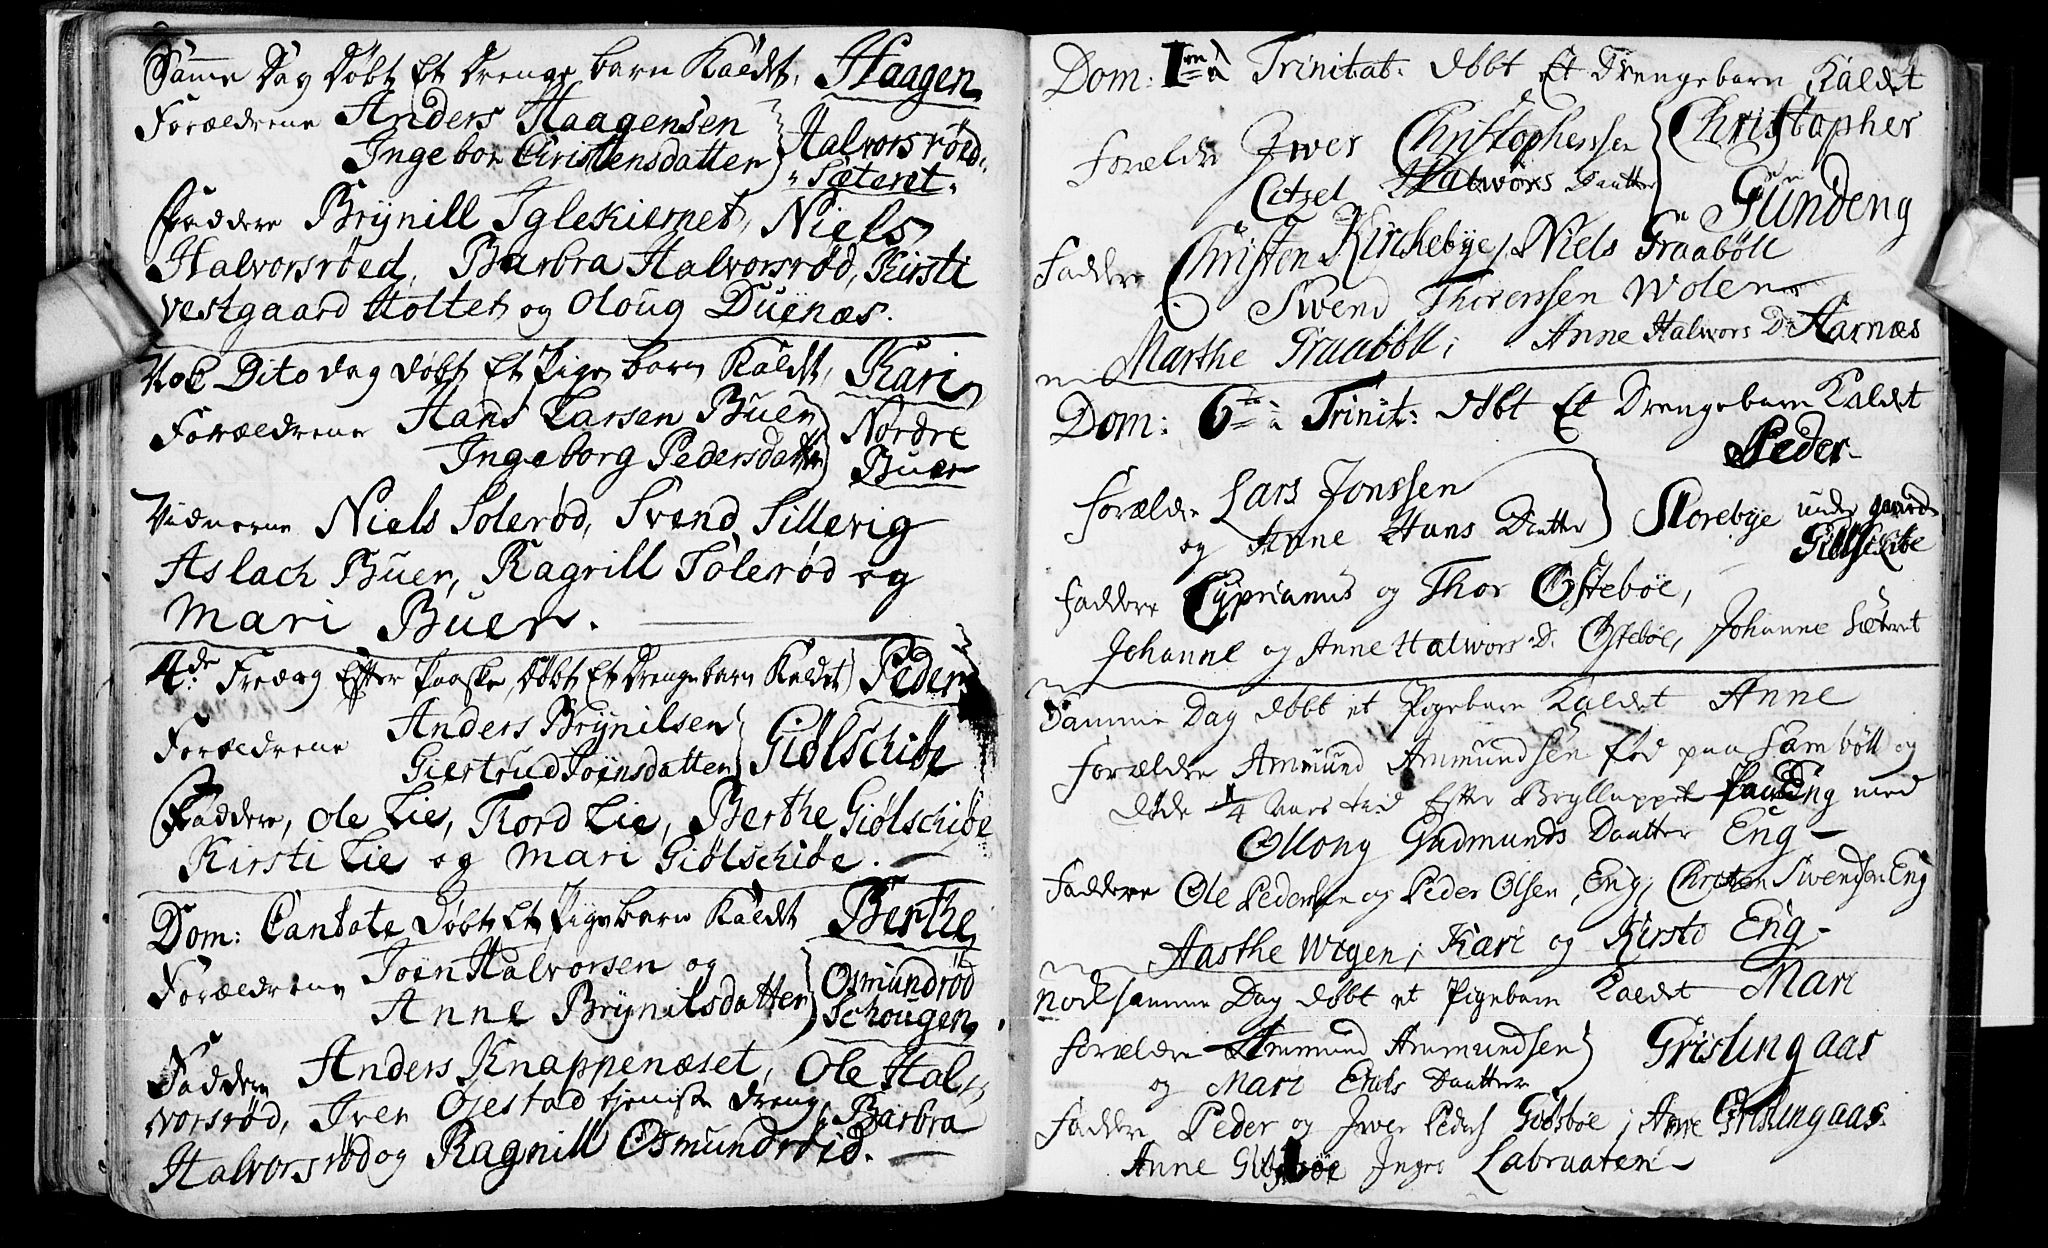 Samme Dag Døbt Et Drenge barn Kaldt, Haagen
Forældrene Anders Haagensen
Ingebor Christensdatter
Halvorsrøed
Sæteret
Faddere Brÿnill Iglekiernet, Niels
Halvorsrøed, Barbra Halvorsrød, Kirsti
vestgaard Holtet og Oloug Duenæs.
Nok Dito dag døbt Et Pige barn Kaldt, Kari
Forældrene Hans Larsen Buer
Ingeborg Pedersdatter
Nordre
Buer
Vidnerne Niels Solerød, Svend Sillevig
Aslach Buer, Ragnill Solerød og
Mari Buer.
4de Fredag Efter Paaske Døbt Et Drengebarn Kaldet Peder
Forældrene Anders Brÿnilsen
Giertrud Joensdatter
Giølschiøe
Faddere, Ole Lie, Tord Lie, Berthe Giølschiøe
Kirsti Lie og Mari Giølschiøe.
Dom: Cantate Døbt Et Pigebarn Kaldt Berthe
Forældrene Joen Halvorsen og
Anne Brÿnilsdatter
Osmundrød
Schougen
Faddere Anders Knappenæset, Ole Hal-
vorsrød, Iver Ojestad tjeniste dreng, Barbra
Halvorsrød og Ragnill Osmundrøed.
Dom: 1ma Trinitat: døbt Et Drengebarn Kaldet
Christopher
Forældre Iver Christophersen
Citzel Halvors Daatter
Gundeng
Faddere Christen Kirchebye, Niels Graabøll
Svend Thoressen Wolen
Marthe Graabøll; Anne Halvors Dr Harnæs
Dom: 6te à Trinit: døbt Et Drengebarn Kaldet
Peder
Forældre Lars Jonssen
og Anne Hans Daatter
Storebye under gaarden
Faddere Cyprianus og Thor Ostebøe,
Johanne og Anne Halwors D. Ostebøe, Johanne Sæteret
Samme Dag døbt et Pigebarn Kaldet Anne
Forældre Ammund Ammundsen fød paa Sambøll og
døde 1/4 Aars tid Efter Brylluppet med
Ollong Gudmunds Daatter Eng
Faddere Ole Pedersen og Peder Olsen, Eng, Christen Swendsen Eng
Aasthe Wigen; Kari og Kirsti Eng
nok samme Dag døbt et Pigebarn Kaldet Mari
Forældre Ammund Ammundsen
og Mari Daatter
Grislingaas
Faddere Peder og Iver Peders Anne Grislingaas
Anne Labraaten